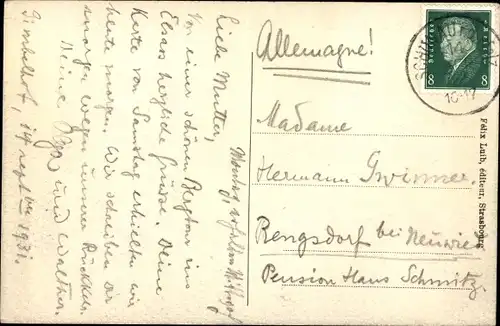 Montag
Liebe Mutter,
Von einer schönen Bergtour ins
Elsass herzliche Grüsse. Deine
Karte von Samstag erhielten wir
heute morgen. Wir schreiben Dir
morgen wegen unserer Rückkehr.
Deine und Walther.
Gimbelhof, 14 sept 1931.
Allemagne!
Madame
Hermann Gwinner
Rengsdorf bei Neuwied
Pension Haus Schmitz.
Félix Luib, éditeur, Strasbourg
Deutsches Reich
8 8